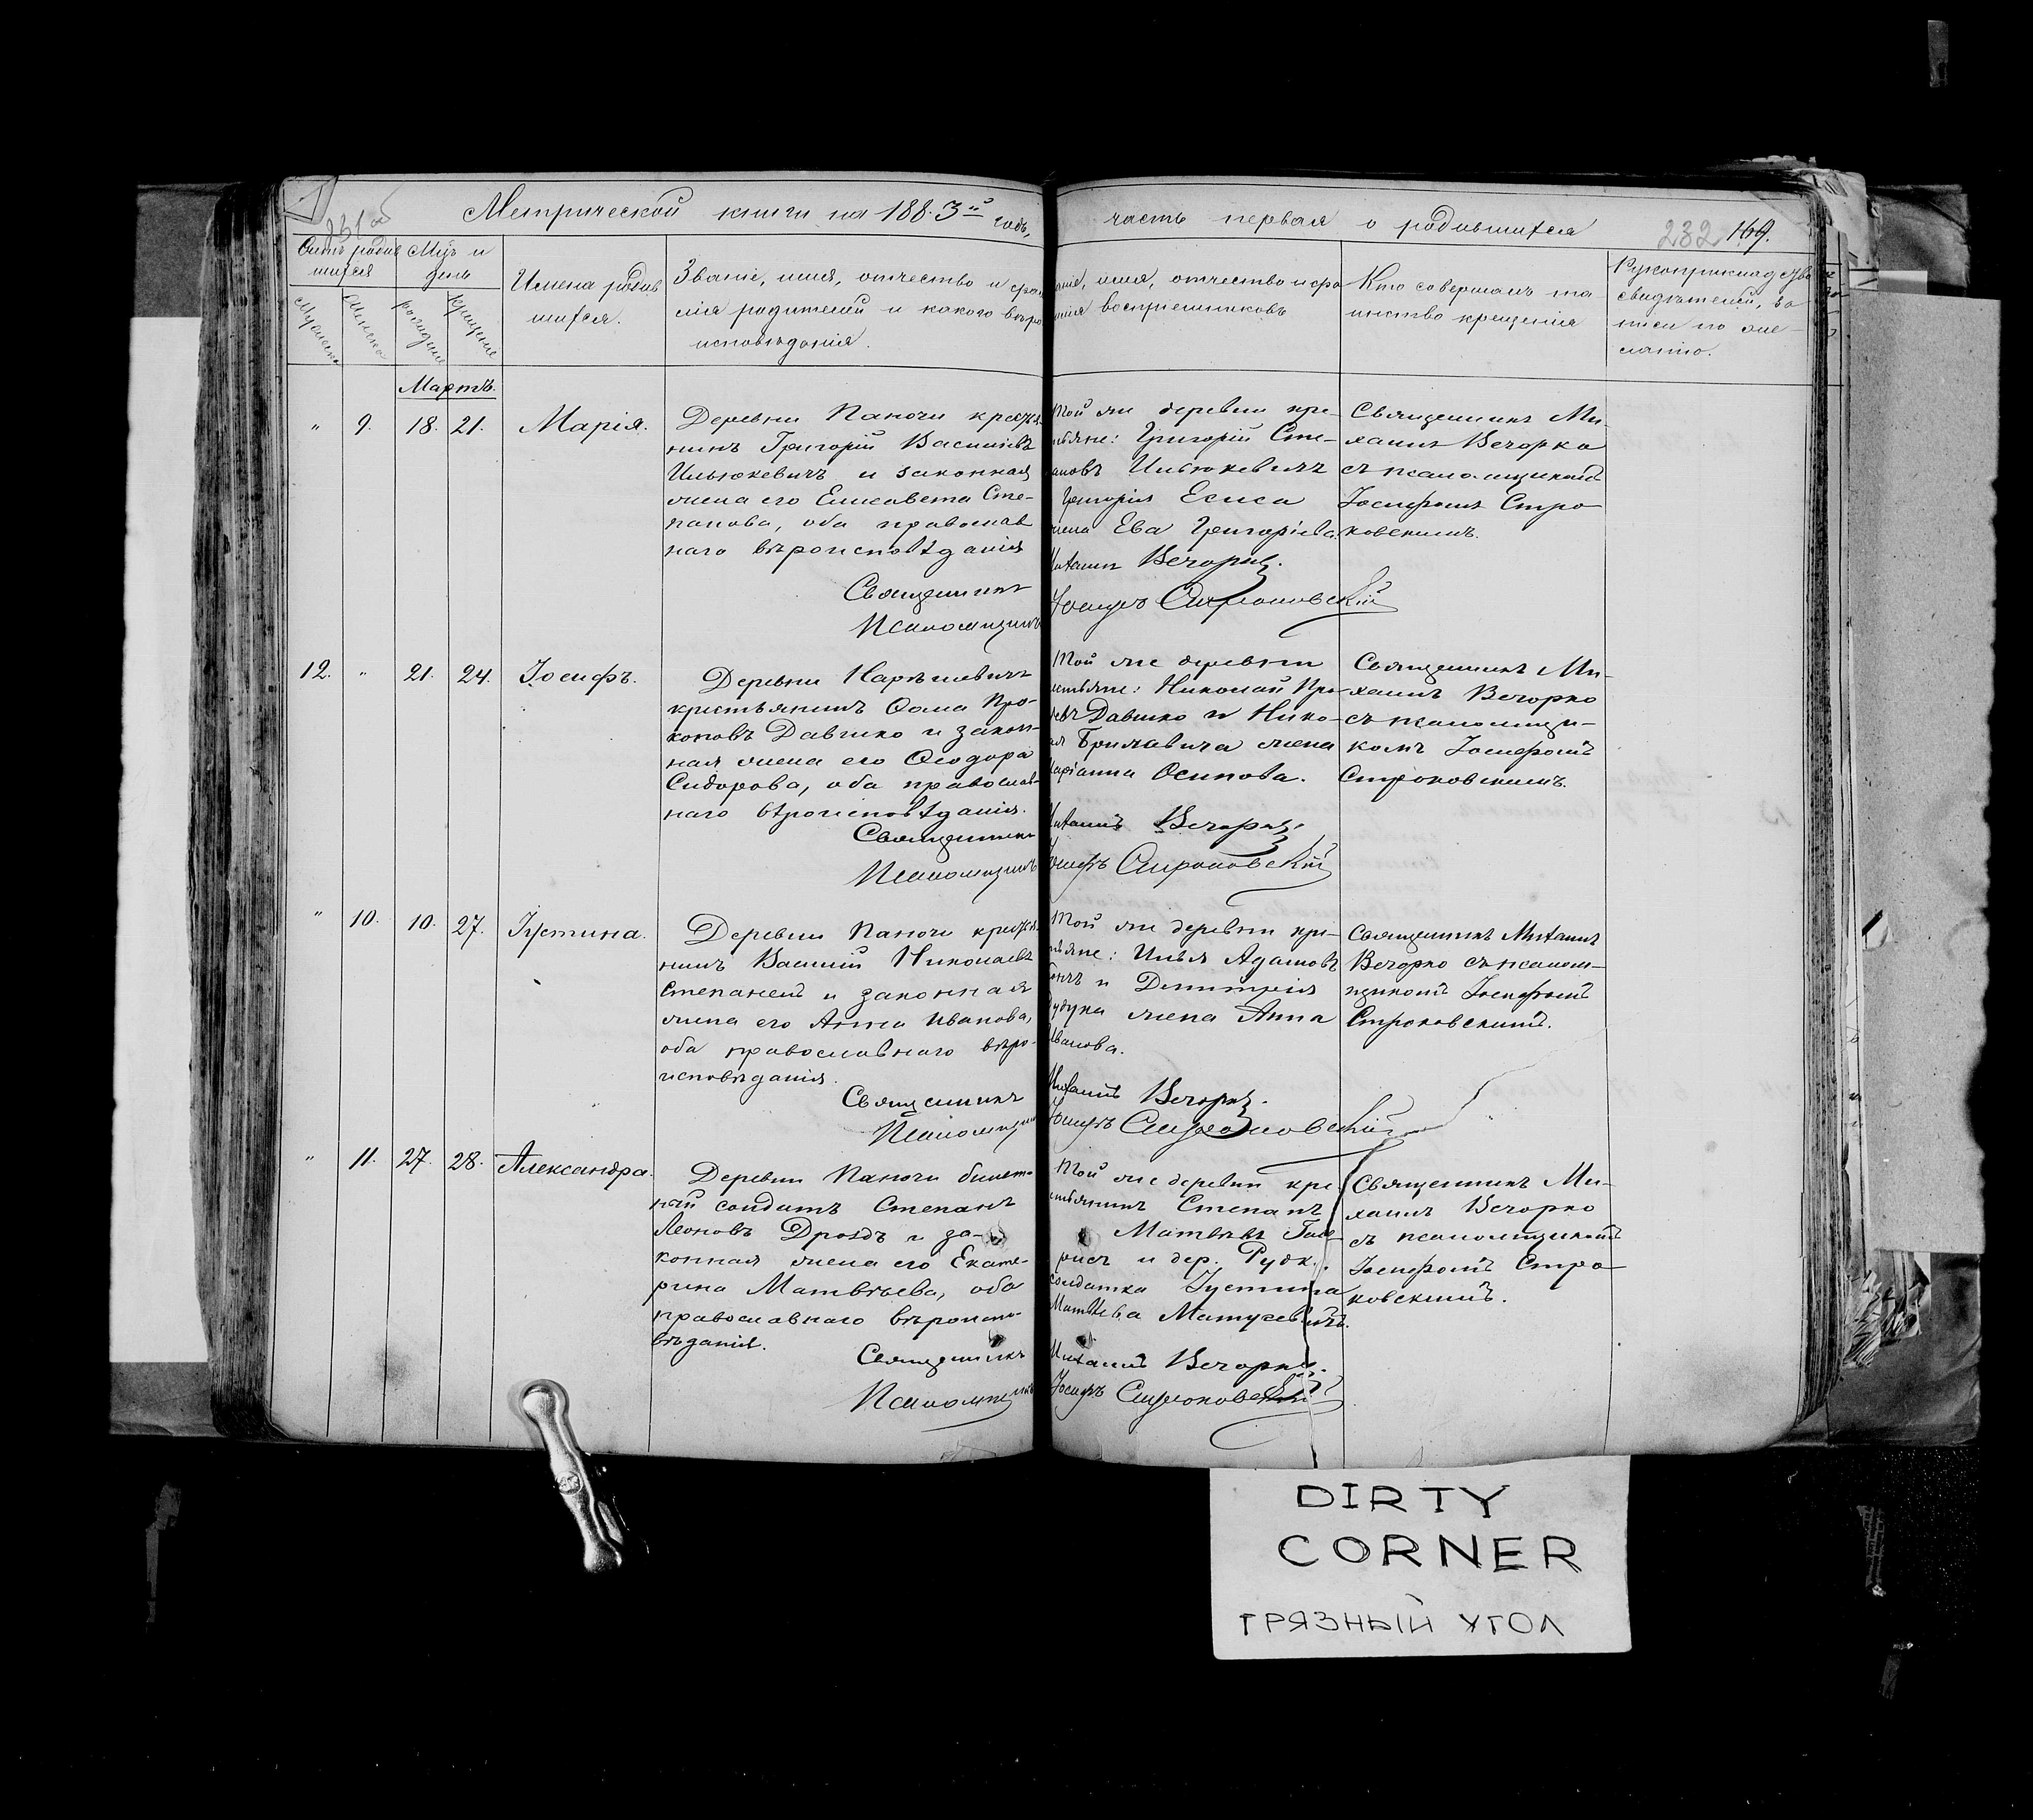 Метрической книги на 1883й годъ,
часть первая о родившихся
232 169.
Счетъ родив
шихся
Мцъ и
день
Мужеска
Женска
рожденіе
крещеніе
Имена родив
шихся.
Званіе, имя, отчество и фами
лія родителей и какого вѣро
исповѣданія.
имя, отчество и фа
восприемниковъ
Кто совершалъ та
инство крещенія
Рукоприкладство
свидѣтелей, за
писи по же
ланію.
Мартъ.
„ 9. 18. 21. Марія.
Деревни Паночи крестья
нинъ Григорій Васильевъ
Ильюкевичъ и законная
жена его Елисавета Сте-
панова, оба православ
наго вѣроисповѣданія
Священникъ
Псаломщикъ
Той же деревни кре-
Григорій Сте-
Ильюкевичъ
Григорія
жена Ева Григоріева.
Михаилъ Вечорко.
Іосифъ Строковскій
Священникъ Ми-
хаилъ Вечорко
съ псаломщикомъ
Іосифомъ Стро
ковскимъ.
12. „ 21. 24. Іосифъ.
Деревни
крестьянинъ Ѳома Про-
коповъ Давшко и закон-
ная жена его Ѳеодора
Сидорова, оба православ-
наго вѣроисповѣданія.
Священникъ
Псаломщикъ
Той же деревни
Николай Про-
Давшко и Нико-
жена
Маріанна Осипова.
Михаилъ Вечорко
Іосифъ Строковскій
Священникъ Ми-
хаилъ Вечорко
съ псаломщи-
комъ Іосифомъ
Строковскимъ.
„ 10. 10. 27. Іустина.
Деревни Паночи крестья
нинъ Василій Николаевъ
Степанецъ и законная
жена его Анна Иванова,
оба православнаго вѣро-
исповѣданія.
Священникъ
Псаломщикъ
Той же деревни кре-
Илья Адамовъ
и Димитрія
жена Анна
Иванова.
Михаилъ Вечорко.
Іосифъ Строковскій
Священникъ Михаилъ
Вечорко съ псалом-
щикомъ Іосифомъ
Строковскимъ.
„ 11. 27. 28. Александра.
Деревни Паночи билет-
ный солдатъ Степанъ
Леоновъ Дроздъ и за-
конная жена его Екате-
рина Матвѣева, оба
православнаго вѣроиспо-
вѣданія.
Священникъ
Псаломщикъ
Той же деревни кре
Степанъ
Матвѣевъ
и дер.
солдатка Іустина
Матвѣева Матусевичъ.
Михаилъ Вечорко.
Іосифъ Строковскій
Священникъ Ми-
хаилъ Вечорко
съ псаломщикомъ
Іосифомъ Стро
ковскимъ.
DIRTY
CORNER
ГРЯЗНЫЙ УГОЛ